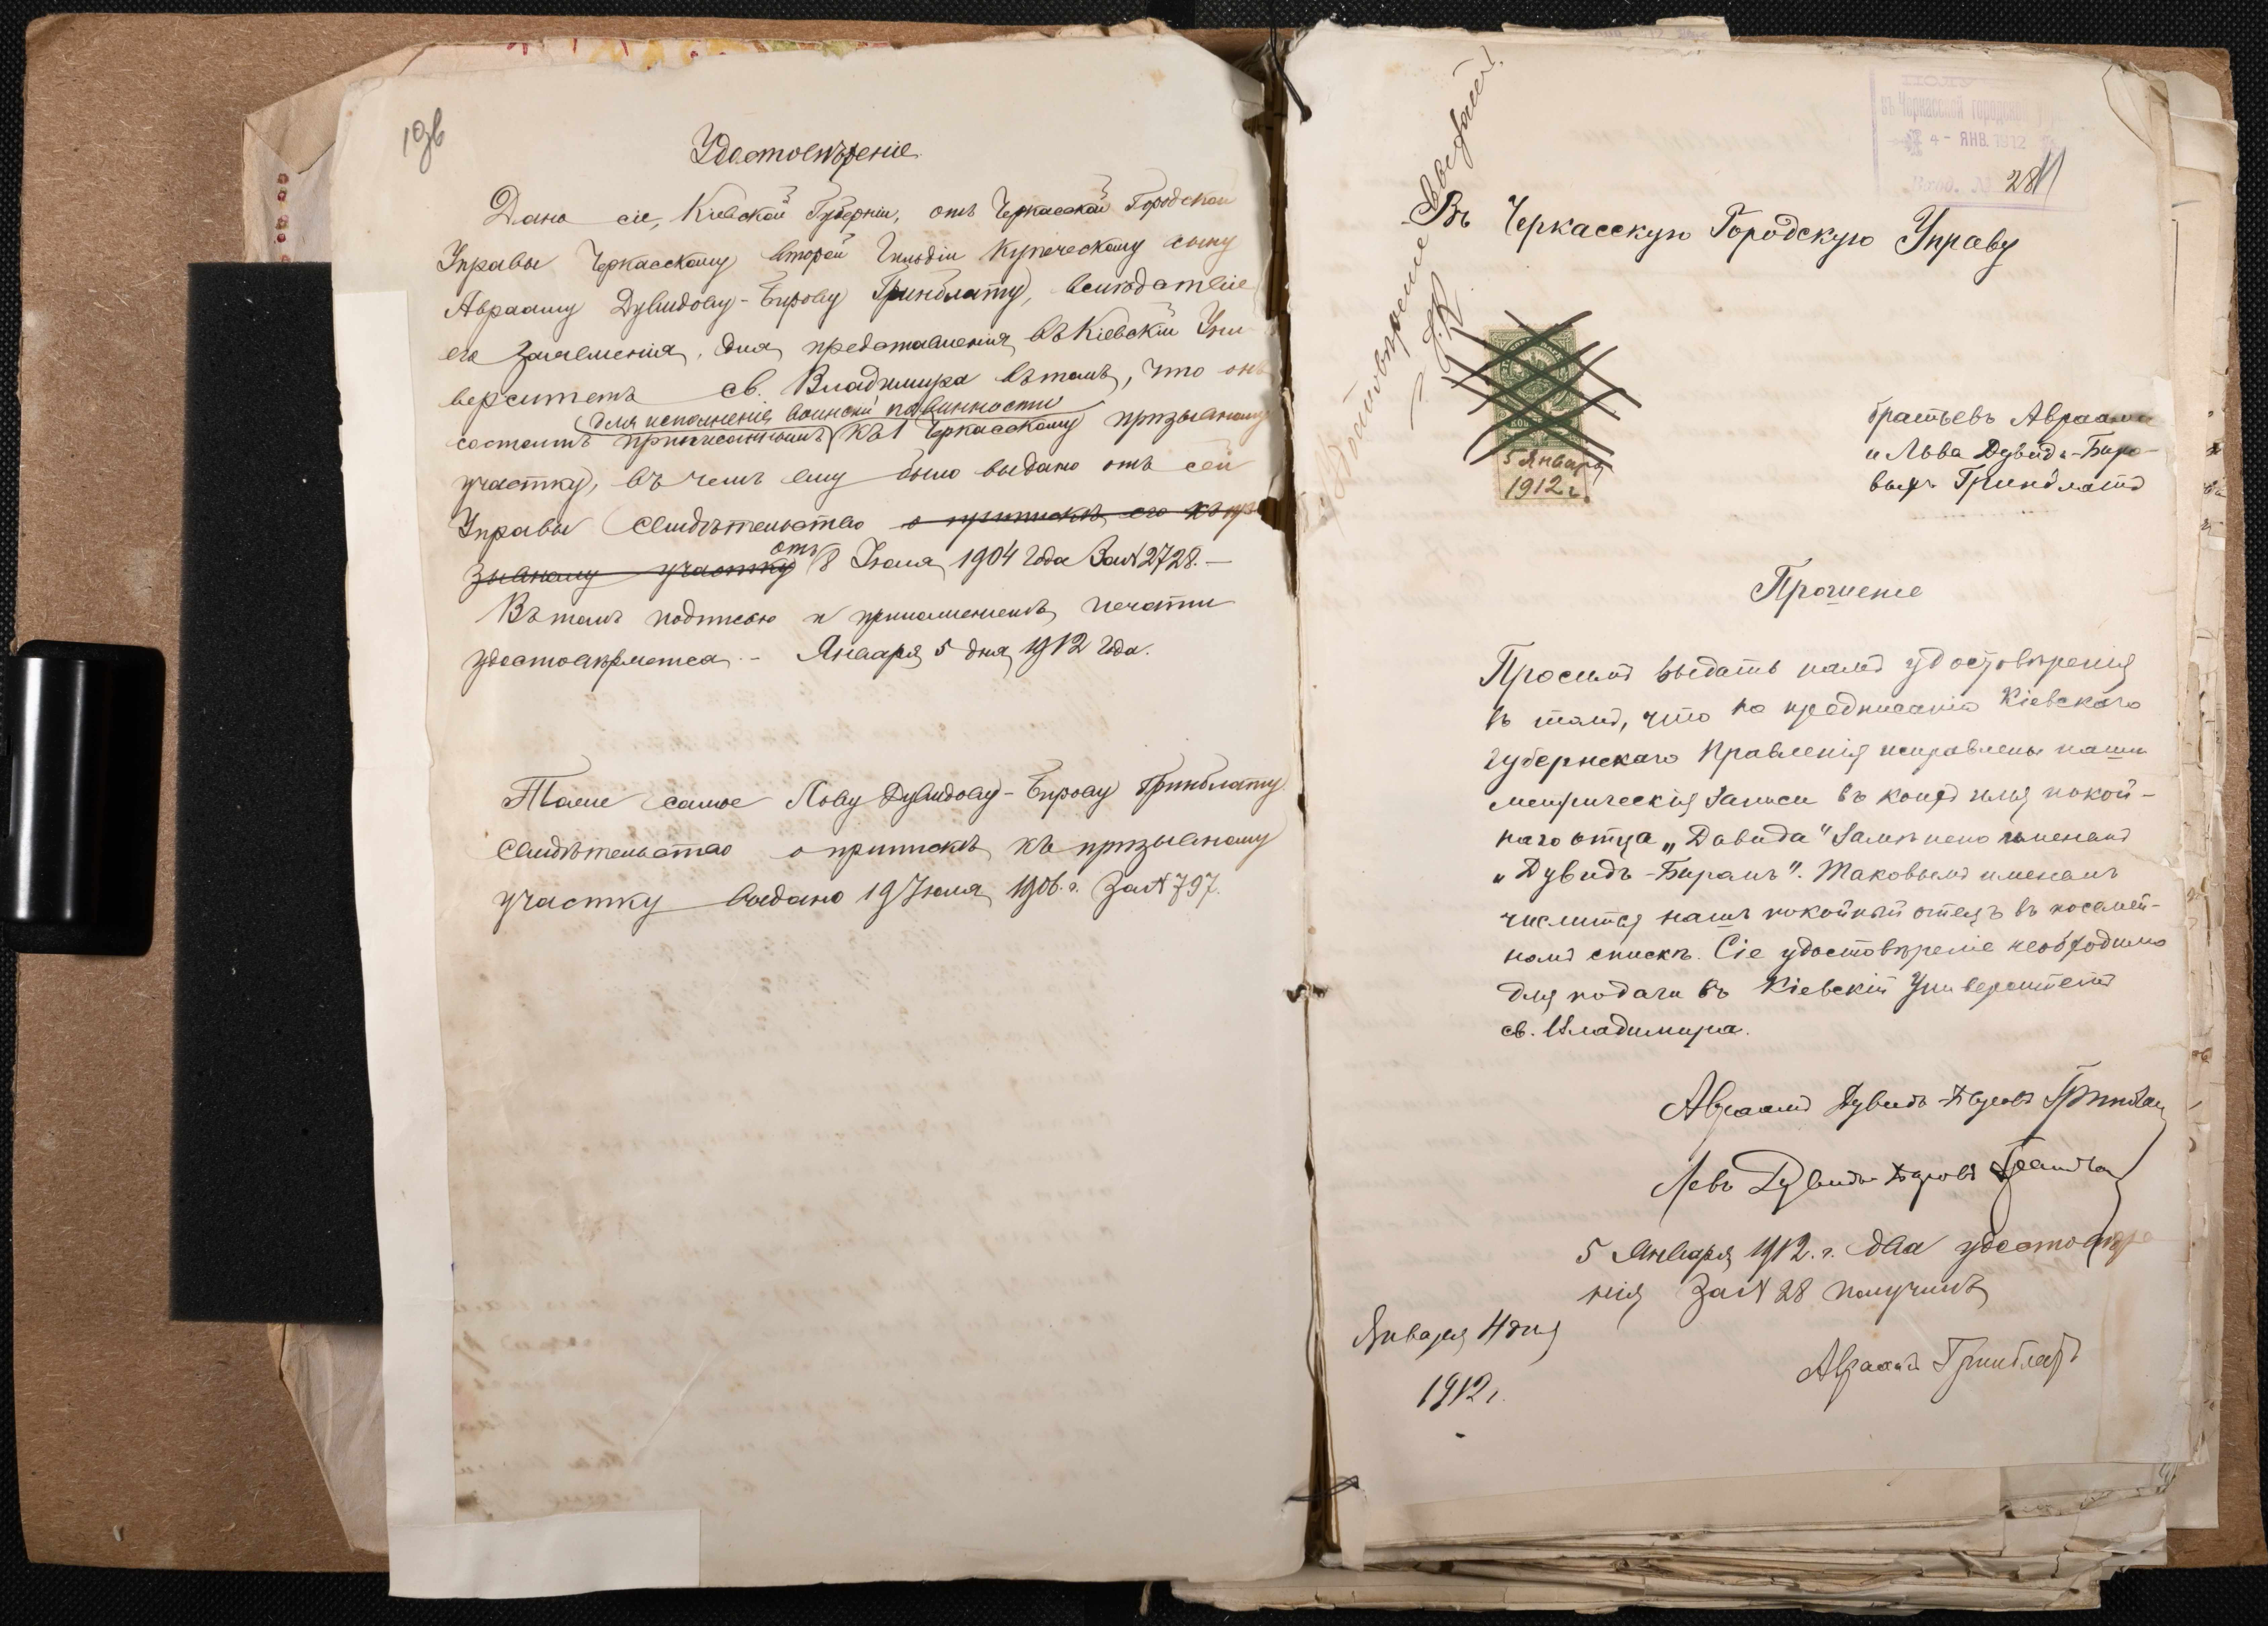 198
Удостовѣреніе
Дано сіе, Кіевской Губерніи, отъ Черкасской Городской
Управы Черкасскому второй Гильдіи Купеческому сыну
Аврааму Дувидову-Бирову Гринблату, вслѣдствіе
его заявленія, для представленія въ Кіевскій Уни
верситетъ св. Владимира въ томъ, что онъ
для исполненія воинской повинности
состоитъ приписаннымъ къ 1 Черкасскому призывному
участку, въ чемъ ему было выдано отъ сей
Управы Свидѣтельство о припискѣ его къ при
зывному участку отъ 8 Іюля 1904 года За № 2728.-
Въ томъ подписью и приложеніемъ печати
удостовѣряется.- Января 5 дня 1912 года.
Такое самое Лову Дувидову-Бирову Гринблату.
Свидѣтельство о припискѣ къ призывному
участку выдано 19 Іюля 1906.г. За № 797.
въ Черкасской городской
4 - ЯНВ. 1912
Вход. № 28
Удостовѣреніе выдать!
Въ Черкасскую Городскую Управу
5 Января
1912 г.
братьевъ Авраама
и Льва Дувидъ-Биро-
выхъ Гринблатъ
Прошеніе
Просимъ выдать намъ удостовѣренія
въ томъ, что по предписанію Кіевскаго
Губернскаго Правленія исправлены наши
метрическія записи въ коихъ имя покой-
наго отца „Давида" замѣнено именемъ
„Дувидъ-Бирамъ". Таковымъ именемъ
числится нашъ покойный отецъ въ посемей-
номъ спискѣ. Сіе удостовѣреніе необходимо
для подачи въ Кіевскій Университетъ
св. Владимира.
Авраамъ Дувидъ-Бировъ Гринблатъ
Левъ Дувидъ-Бировъ Гринблатъ
5 Января 1912.г. два удостовѣре
нія За № 28 получилъ
Авраамъ Гринблатъ
Января 4 дня
1912 г.